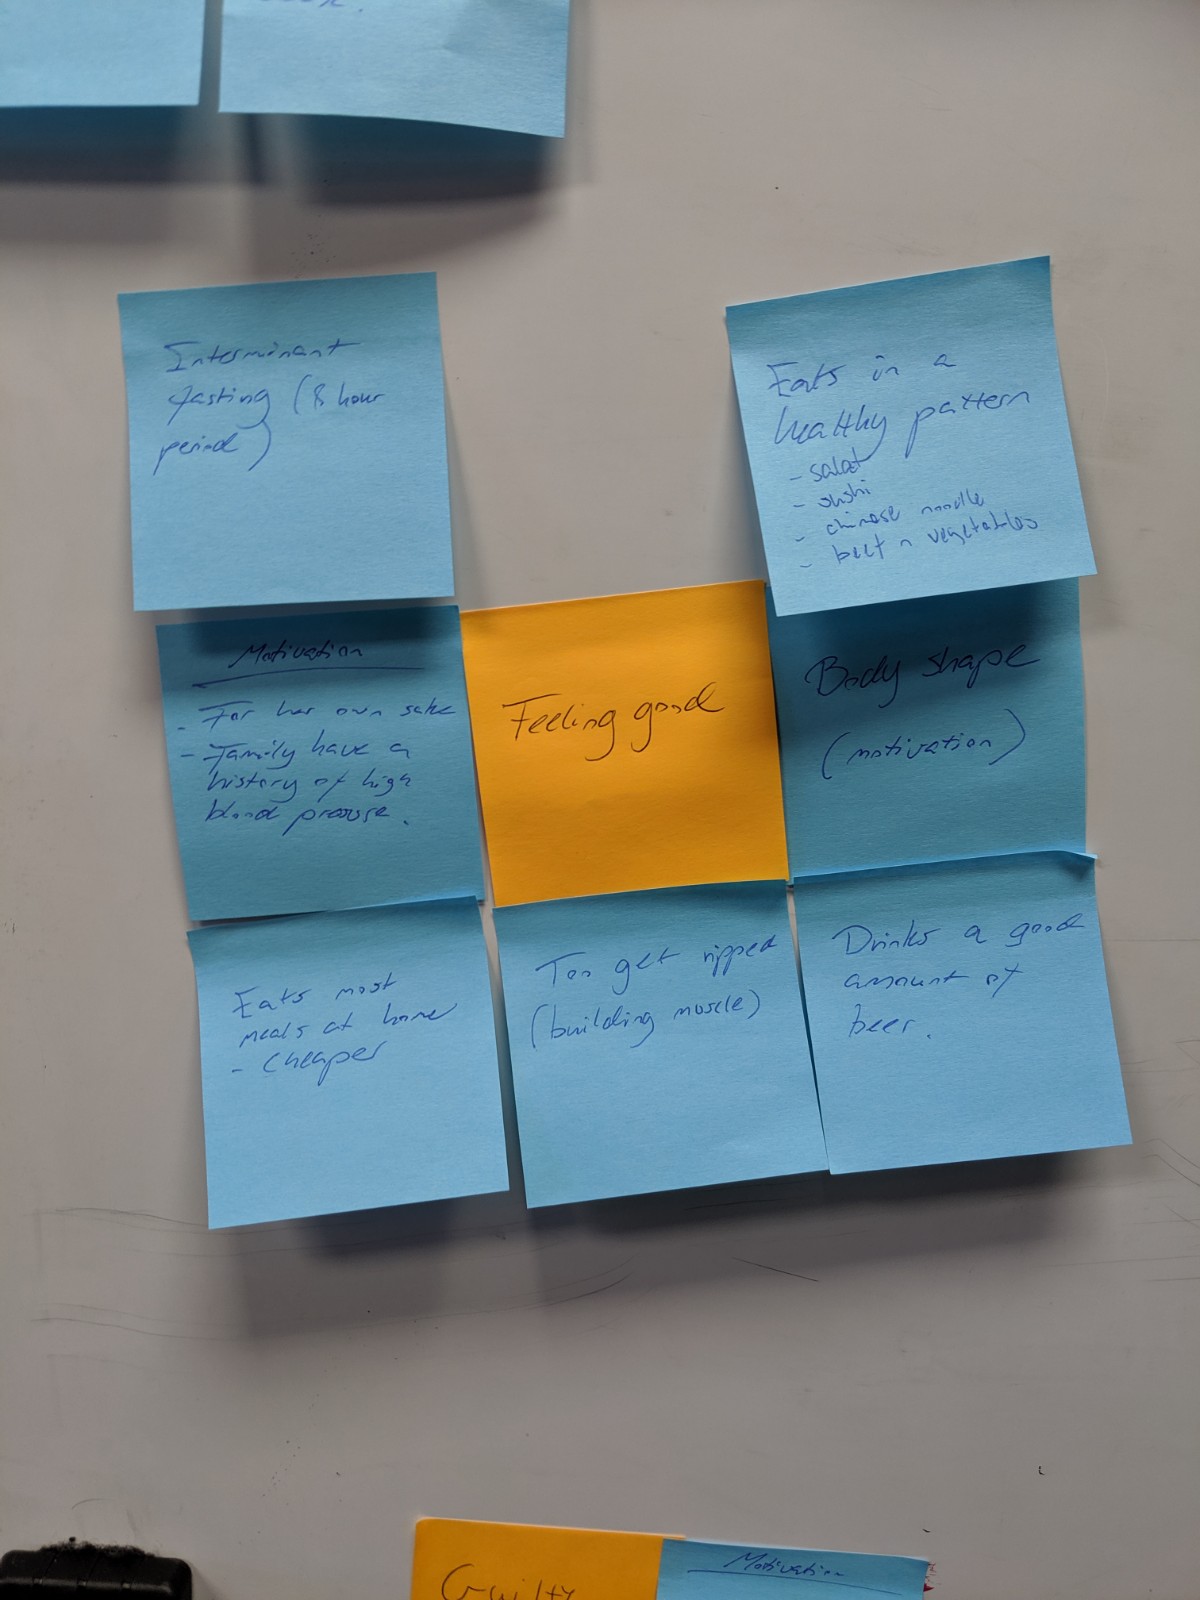 Interminant
fasting (8 hour
period)
Eats in a
healthy pattern
- salat
- sushi
- chinese noodle
- beef n vegetables
Motivation
- For her own sake
- Family have a
history of high
blood pressure.
Feeling good
Body shape
(motivation)
Eats most
meals at home
- cheaper
Too get ripped
(building muscle)
Drinks a good
amount of
beer.
Guilty
Motivation